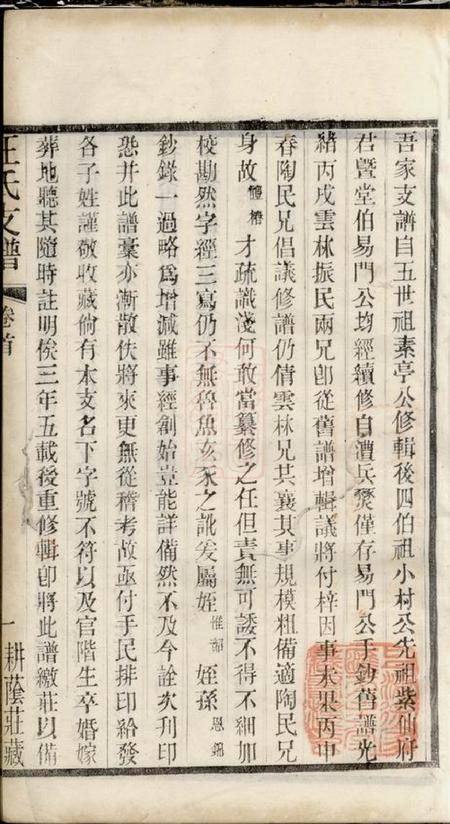 吾家支譜自五世祖素亭公修輯後四伯祖小村公先祖紫仙府
君暨堂伯易門公均經續修自遭兵燹僅存易門公手鈔舊譜光
緒丙戌雲林振民兩兄卽從舊譜增輯議將付梓因事未果丙申
春陶民兄倡議修譜仍倩雲林兄共襄其事規模粗備適陶民兄
身故體椿才疏識淺何敢當纂修之任但責無可諉不得不細加
校勘然字經三寫仍不無魯魚亥豕之訛爰屬姪惟韶姪孫恩錦
鈔錄一過略爲增減雖事經創始豈能詳備然不及今詮次刋印
恐并此譜稾亦漸散佚將來更無從稽考故亟付于民排印給發
各子姓謹敬收藏倘有本支名下字號不符以及官階生卒婚嫁
葬地聽其隨時註明俟三年五載後重修輯卽將此譜繳莊以備
王氏支譜
卷首
一
耕蔭莊藏